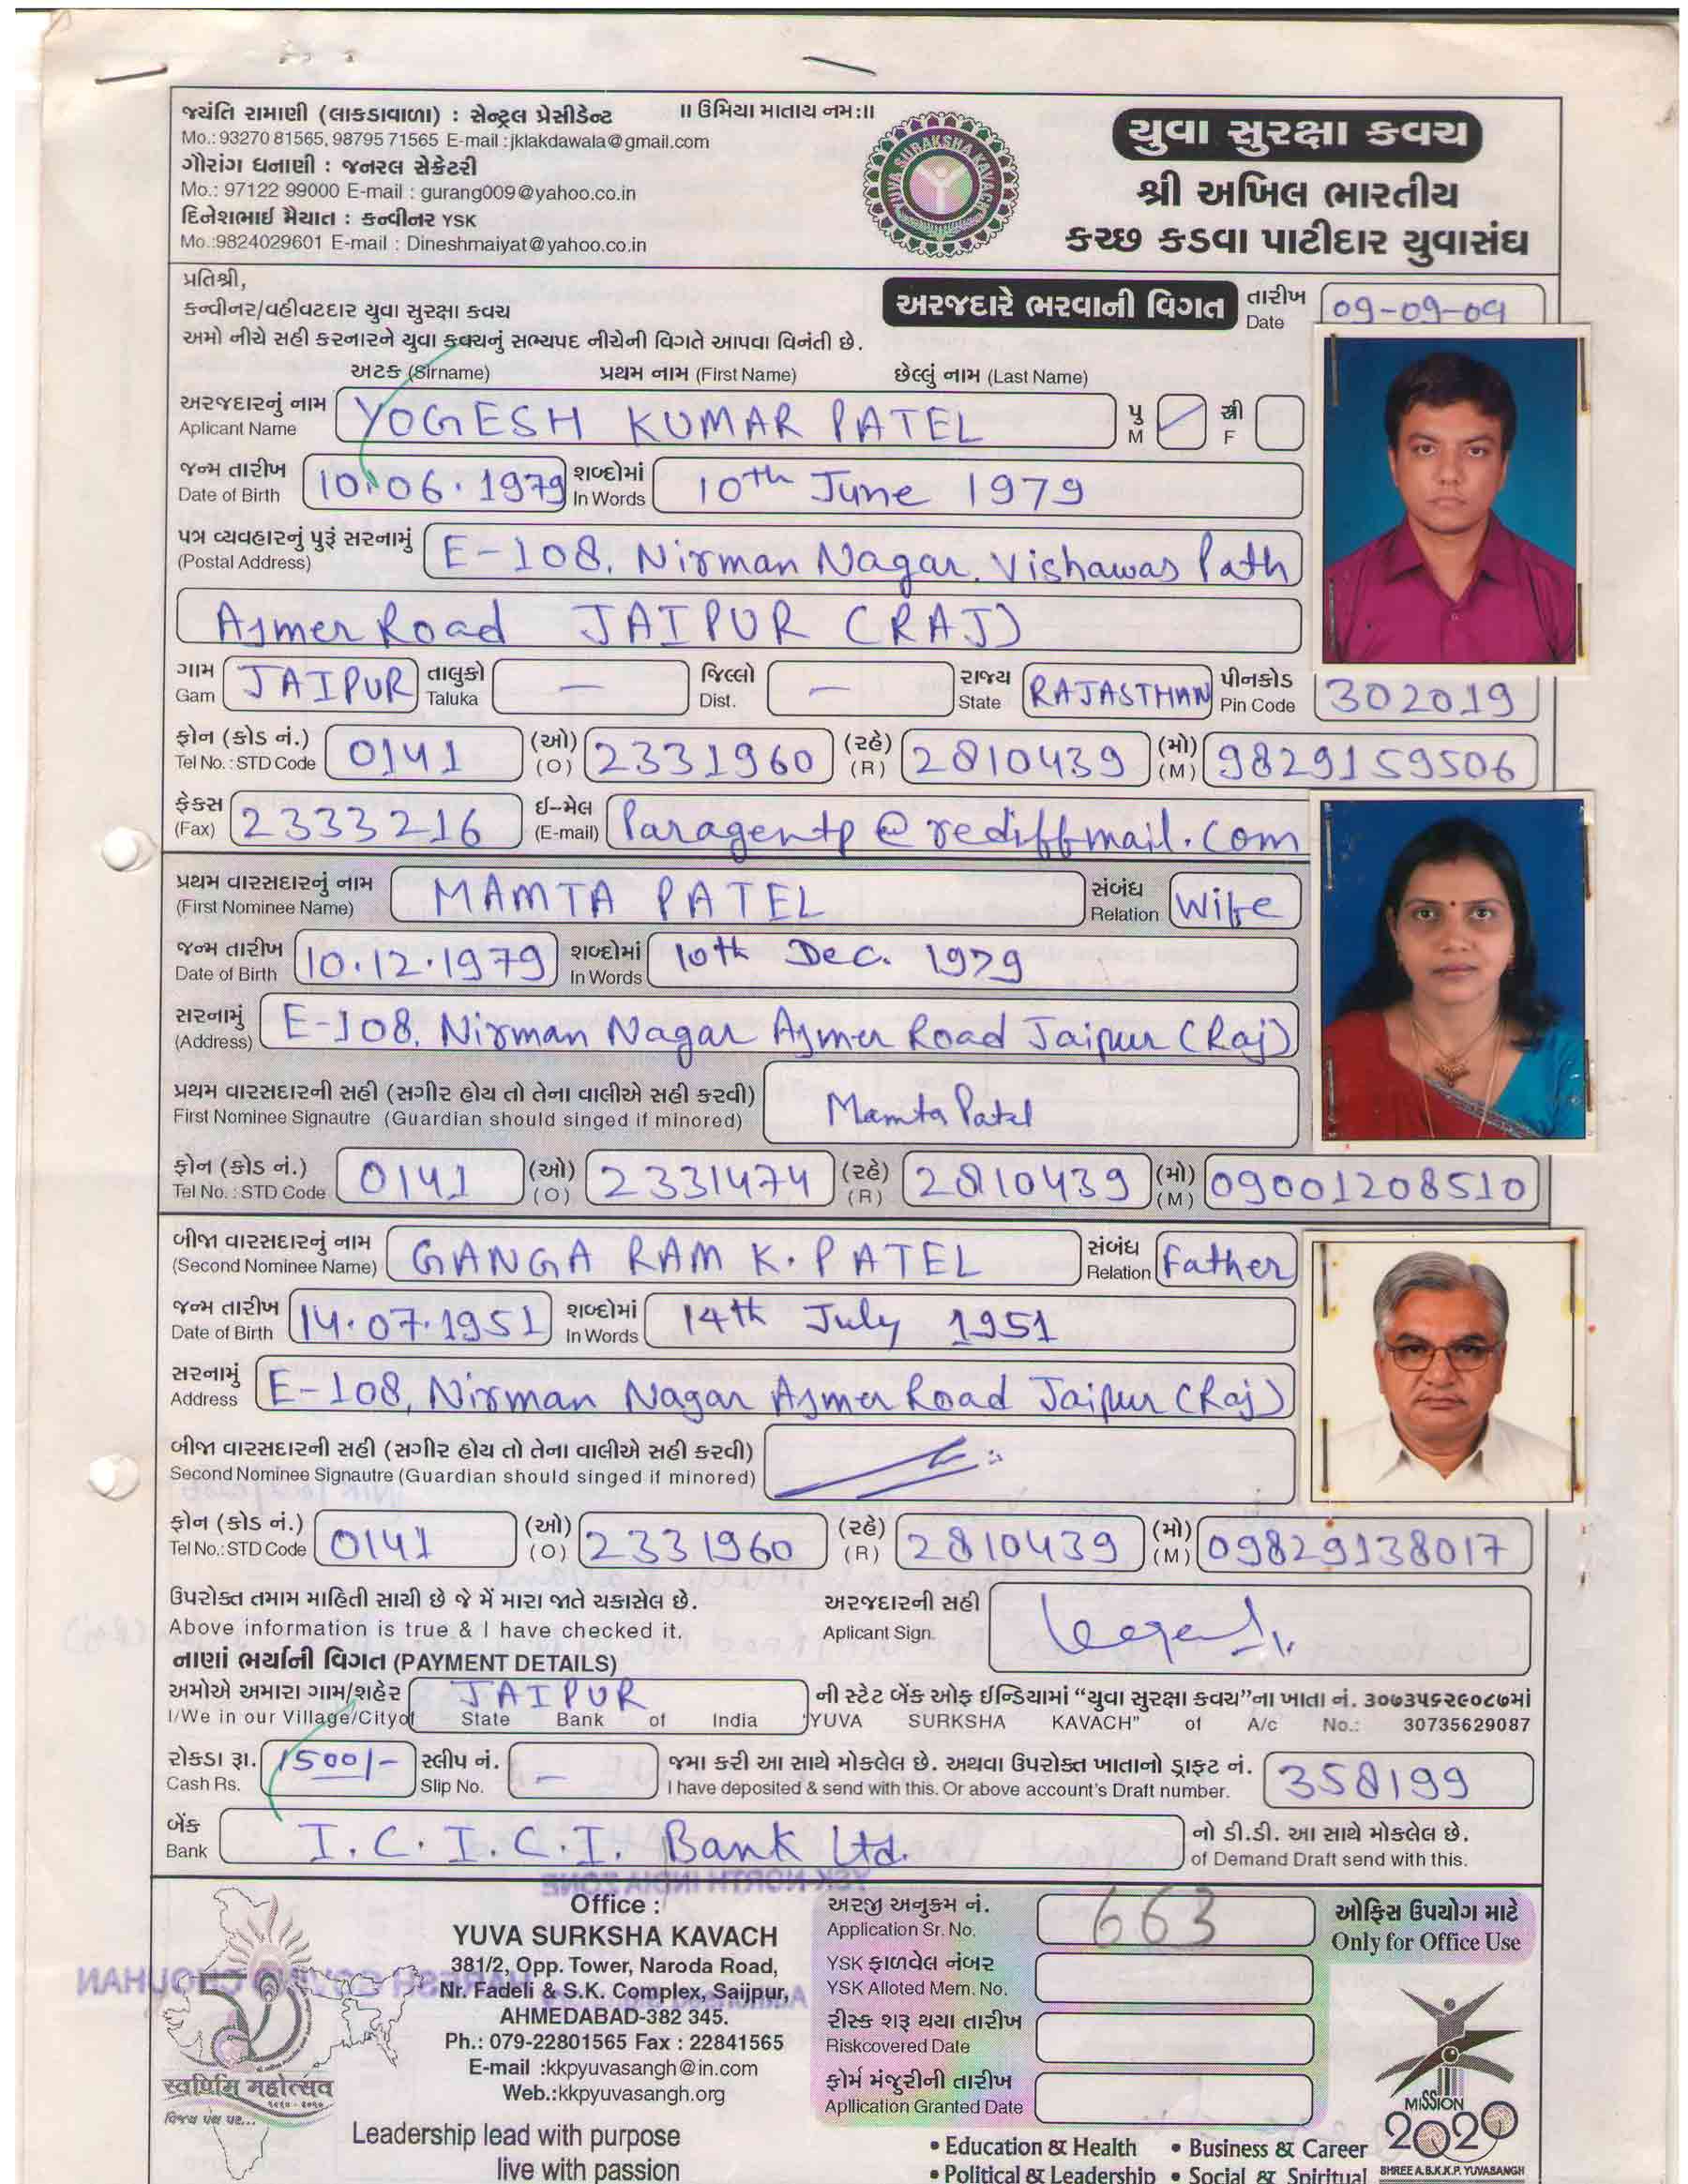 જયંતિ રામાણી (લાકડાવાળા) : સેન્ટ્રલ પ્રેસીડેન્ટ
Mo.: 93270 81565, 98795 71565 E-mail : jklakdawala@gmail.com
ગૌરાંગ ધનાણી : જનરલ સેક્રેટરી
Mo.: 97122 99000 E-mail : gurang009@yahoo.co.in
દિનેશભાઈ મૈયાત : કન્વીનર YSK
Mo.:9824029601 E-mail : Dineshmaiyat@yahoo.co.in
॥ ઉમિયા માતાય નમઃ॥
YUVA SURAKSHA KAVACH
યુવા સુરક્ષા કવચ
શ્રી અખિલ ભારતીય
કચ્છ કડવા પાટીદાર યુવાસંઘ
પ્રતિશ્રી,
કન્વીનર/વહીવટદાર યુવા સુરક્ષા કવચ
અરજદારે ભરવાની વિગત તારીખ Date 09-09-09
અમો નીચે સહી કરનારને યુવા કવચનું સભ્યપદ નીચેની વિગતે આપવા વિનંતી છે.
અટક (Sirname) પ્રથમ નામ (First Name) છેલ્લું નામ (Last Name)
અરજદારનું નામ Aplicant Name YOGESH KUMAR PATEL પુ M ✓ સ્ત્રી F
જન્મ તારીખ Date of Birth 10.06.1979 શબ્દોમાં In Words 10th June 1979
પત્ર વ્યવહારનું પુરૂં સરનામું (Postal Address) E-108, Nirman Nagar, Vishawas Path
Ajmer Road JAIPUR (RAJ)
ગામ Gam JAIPUR તાલુકો Taluka — જિલ્લો Dist. — રાજ્ય State RAJASTHAN પીનકોડ Pin Code 302019
ફોન (કોડ નં.) Tel No. : STD Code 0141 (ઓ) (O) 2331960 (રહે) (R) 2810439 (મો) (M) 9829159506
ફેક્સ (Fax) 2333216 ઈ-મેલ (E-mail) Paragentp@rediffmail.com
પ્રથમ વારસદારનું નામ (First Nominee Name) MAMTA PATEL સંબંધ Relation Wife
જન્મ તારીખ Date of Birth 10.12.1979 શબ્દોમાં In Words 10th Dec. 1979
સરનામું (Address) E-108, Nirman Nagar Ajmer Road Jaipur (Raj)
પ્રથમ વારસદારની સહી (સગીર હોય તો તેના વાલીએ સહી કરવી)
First Nominee Signautre (Guardian should singed if minored) Mamta Patel
ફોન (કોડ નં.) Tel No. : STD Code 0141 (ઓ) (O) 2331474 (રહે) (R) 2810439 (મો) (M) 09001208510
બીજા વારસદારનું નામ (Second Nominee Name) GANGA RAM K. PATEL સંબંધ Relation Father
જન્મ તારીખ Date of Birth 14.07.1951 શબ્દોમાં In Words 14th July 1951
સરનામું Address E-108, Nirman Nagar Ajmer Road Jaipur (Raj)
બીજા વારસદારની સહી (સગીર હોય તો તેના વાલીએ સહી કરવી)
Second Nominee Signautre (Guardian should singed if minored)
ફોન (કોડ નં.) Tel No.: STD Code 0141 (ઓ) (O) 2331960 (રહે) (R) 2810439 (મો) (M) 09829138017
ઉપરોક્ત તમામ માહિતી સાચી છે જે મેં મારા જાતે ચકાસેલ છે. અરજદારની સહી
Above information is true & I have checked it. Aplicant Sign.
નાણાં ભર્યાની વિગત (PAYMENT DETAILS)
અમોએ અમારા ગામ/શહેર JAIPUR ની સ્ટેટ બેંક ઓફ ઈન્ડિયામાં “યુવા સુરક્ષા કવચ”ના ખાતા નં. ૩૦૭૩૫૬૨૯૦૮૭માં
I/We in our Village/City of State Bank of India "YUVA SURKSHA KAVACH" of A/c No.: 30735629087
રોકડા રૂા. Cash Rs. 1500/- સ્લીપ નં. Slip No. — જમા કરી આ સાથે મોકલેલ છે. અથવા ઉપરોક્ત ખાતાનો ડ્રાફ્ટ નં. 358199
I have deposited & send with this. Or above account's Draft number.
બેંક Bank I.C.I.C.I. Bank Ltd. નો ડી.ડી. આ સાથે મોકલેલ છે.
of Demand Draft send with this.
Office :
YUVA SURKSHA KAVACH
381/2, Opp. Tower, Naroda Road,
Nr. Fadeli & S.K. Complex, Saijpur,
AHMEDABAD-382 345.
Ph.: 079-22801565 Fax : 22841565
E-mail :kkpyuvasangh@in.com
Web.:kkpyuvasangh.org
Leadership lead with purpose
live with passion
અરજી અનુક્રમ નં. Application Sr. No. 663
YSK ફાળવેલ નંબર
YSK Alloted Mem. No.
રીસ્ક શરૂ થયા તારીખ
Riskcovered Date
ફોર્મ મંજુરીની તારીખ
Apllication Granted Date
ઓફિસ ઉપયોગ માટે
Only for Office Use
MISSION
2020
SHREE A.B.K.K.P. YUVASANGH
• Education & Health • Business & Career
• Political & Leadership • Social & Spiritual